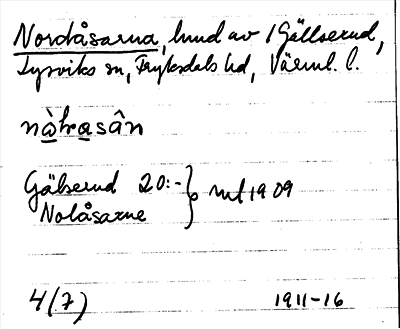 Nordåsarna, lund av 1 Gällserud,
Lysviks sn, Fryksdals hd, Värml. l.
nàlrasân
Gälserud 20:- } ml 1909
Nolåsarne
4(7) 1911-16